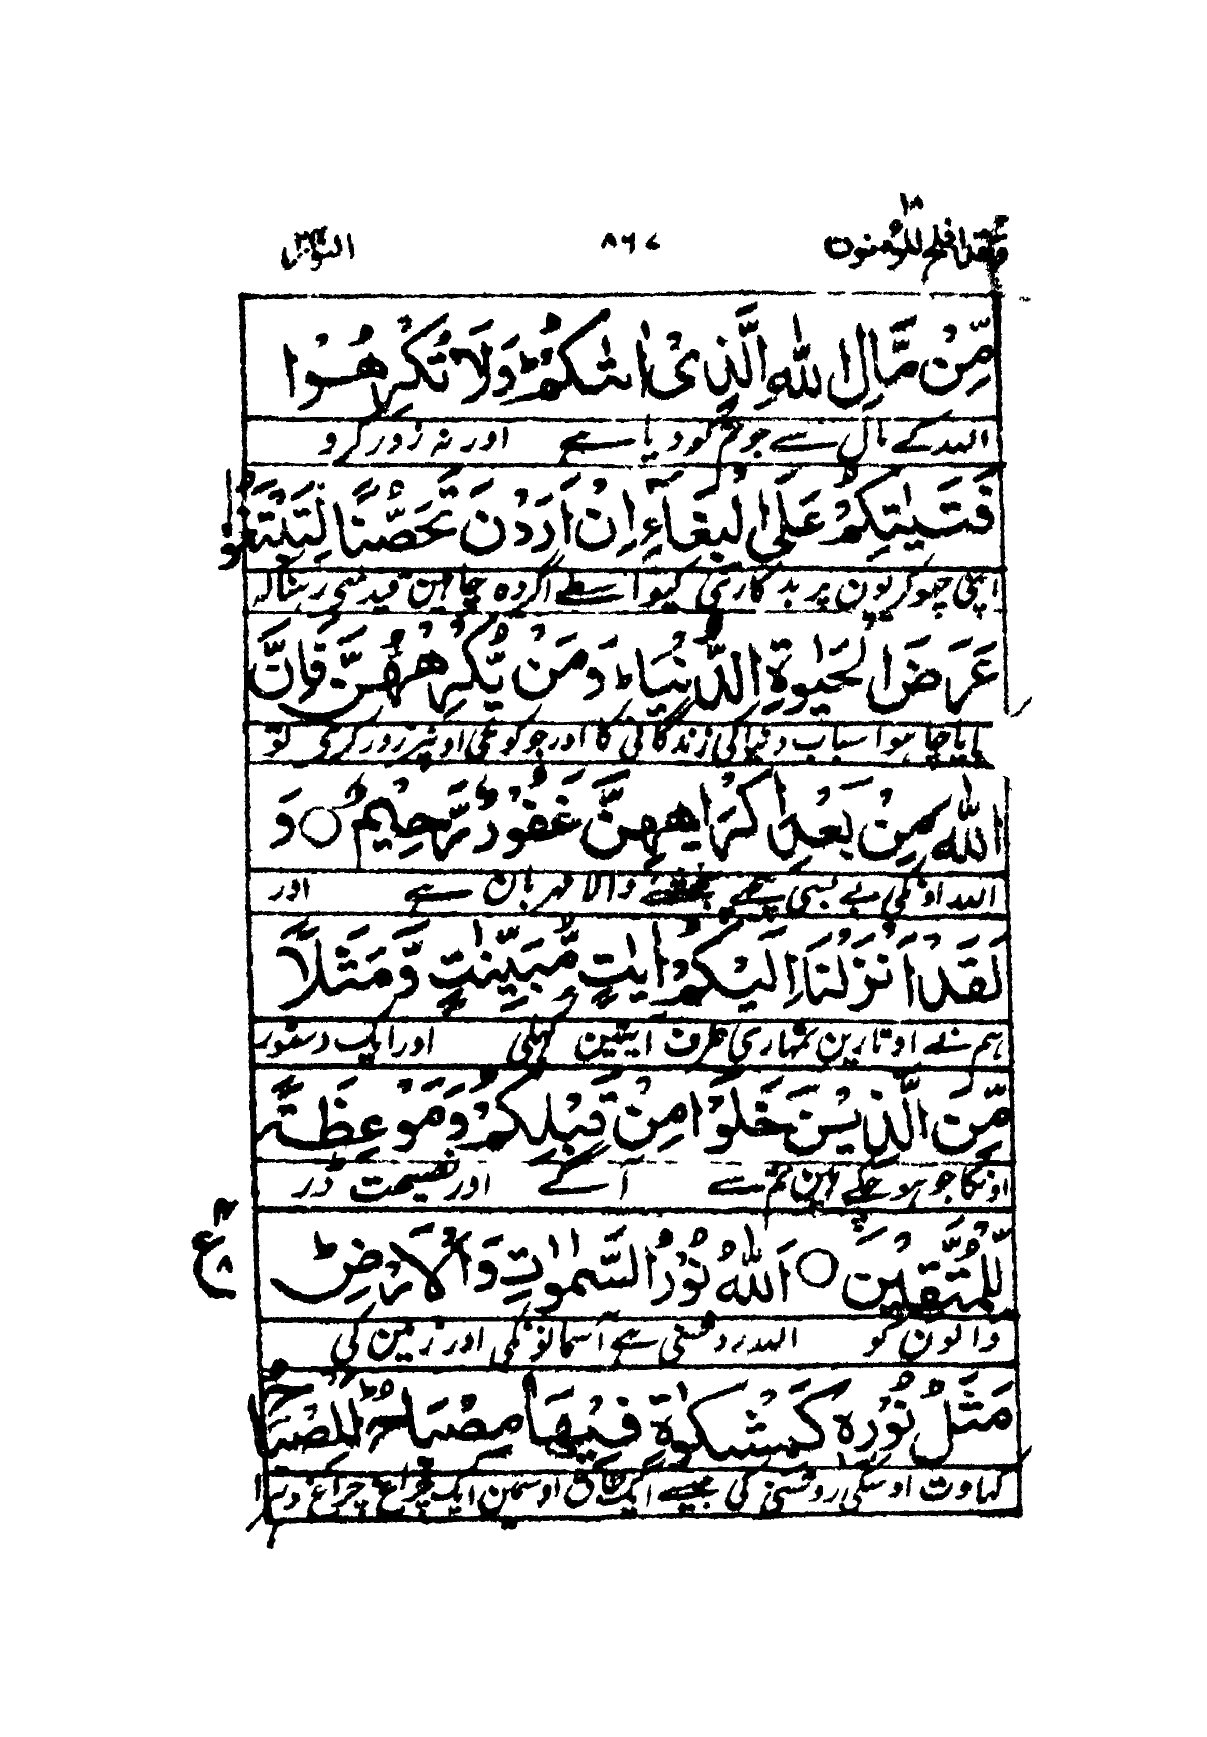 قد افلح المؤمنون ١٨
٨٦٧
النور ٢٤
مِّنْ مَّالِ اللّٰهِ الَّذِیْۤ اٰتٰىكُمْ ؕ وَلَا تُكْرِهُوْا
اللہ کے مال سے جو تم کو دیا ہے اور نہ زور کرو
فَتَیٰتِكُمْ عَلَی الْبِغَآءِ اِنْ اَرَدْنَ تَحَصُّنًا لِّتَبْتَغُوْا
اپنی چھوکریون پر بدکاری کیواسطے اگر وہ چاہین قید سی رہنا کہ
عَرَضَ الْحَیٰوةِ الدُّنْیَا ؕ وَمَنْ یُّكْرِهْهُّنَّ فَاِنَّ
کمایا چاہو اسباب دنیا کی زندگانی کا اور جو کوئی اونپر زور کری تو
اللّٰهَ مِنْۢ بَعْدِ اِكْرَاهِهِنَّ غَفُوْرٌ رَّحِیْمٌ ○ وَ
اللہ اونکی بے بسی پیچھے بخشنے والا مہربان ہے اور
لَقَدْ اَنْزَلْنَاۤ اِلَیْكُمْ اٰیٰتٍ مُّبَیِّنٰتٍ وَّمَثَلًا
ہم نے اوتارین تمہاری طرف آیتین کھلی اور ایک دستور
مِّنَ الَّذِیْنَ خَلَوْا مِنْ قَبْلِكُمْ وَمَوْعِظَةً
اونکا جو ہو چکے ہین تم سے آگے اور نصیحت ڈر
لِّلْمُتَّقِیْنَ ○ اَللّٰهُ نُوْرُ السَّمٰوٰتِ وَالْاَرْضِ ؕ
ع ٨
والون کو اللہ روشنی ہے آسمانونکی اور زمین کی
مَثَلُ نُوْرِهٖ كَمِشْكٰوةٍ فِیْهَا مِصْبَاحٌ ؕ اَلْمِصْبَاحُ
کہاوت اوسکی روشنی کی جیسے ایک طاق اوسمین ایک چراغ چراغ دہرا